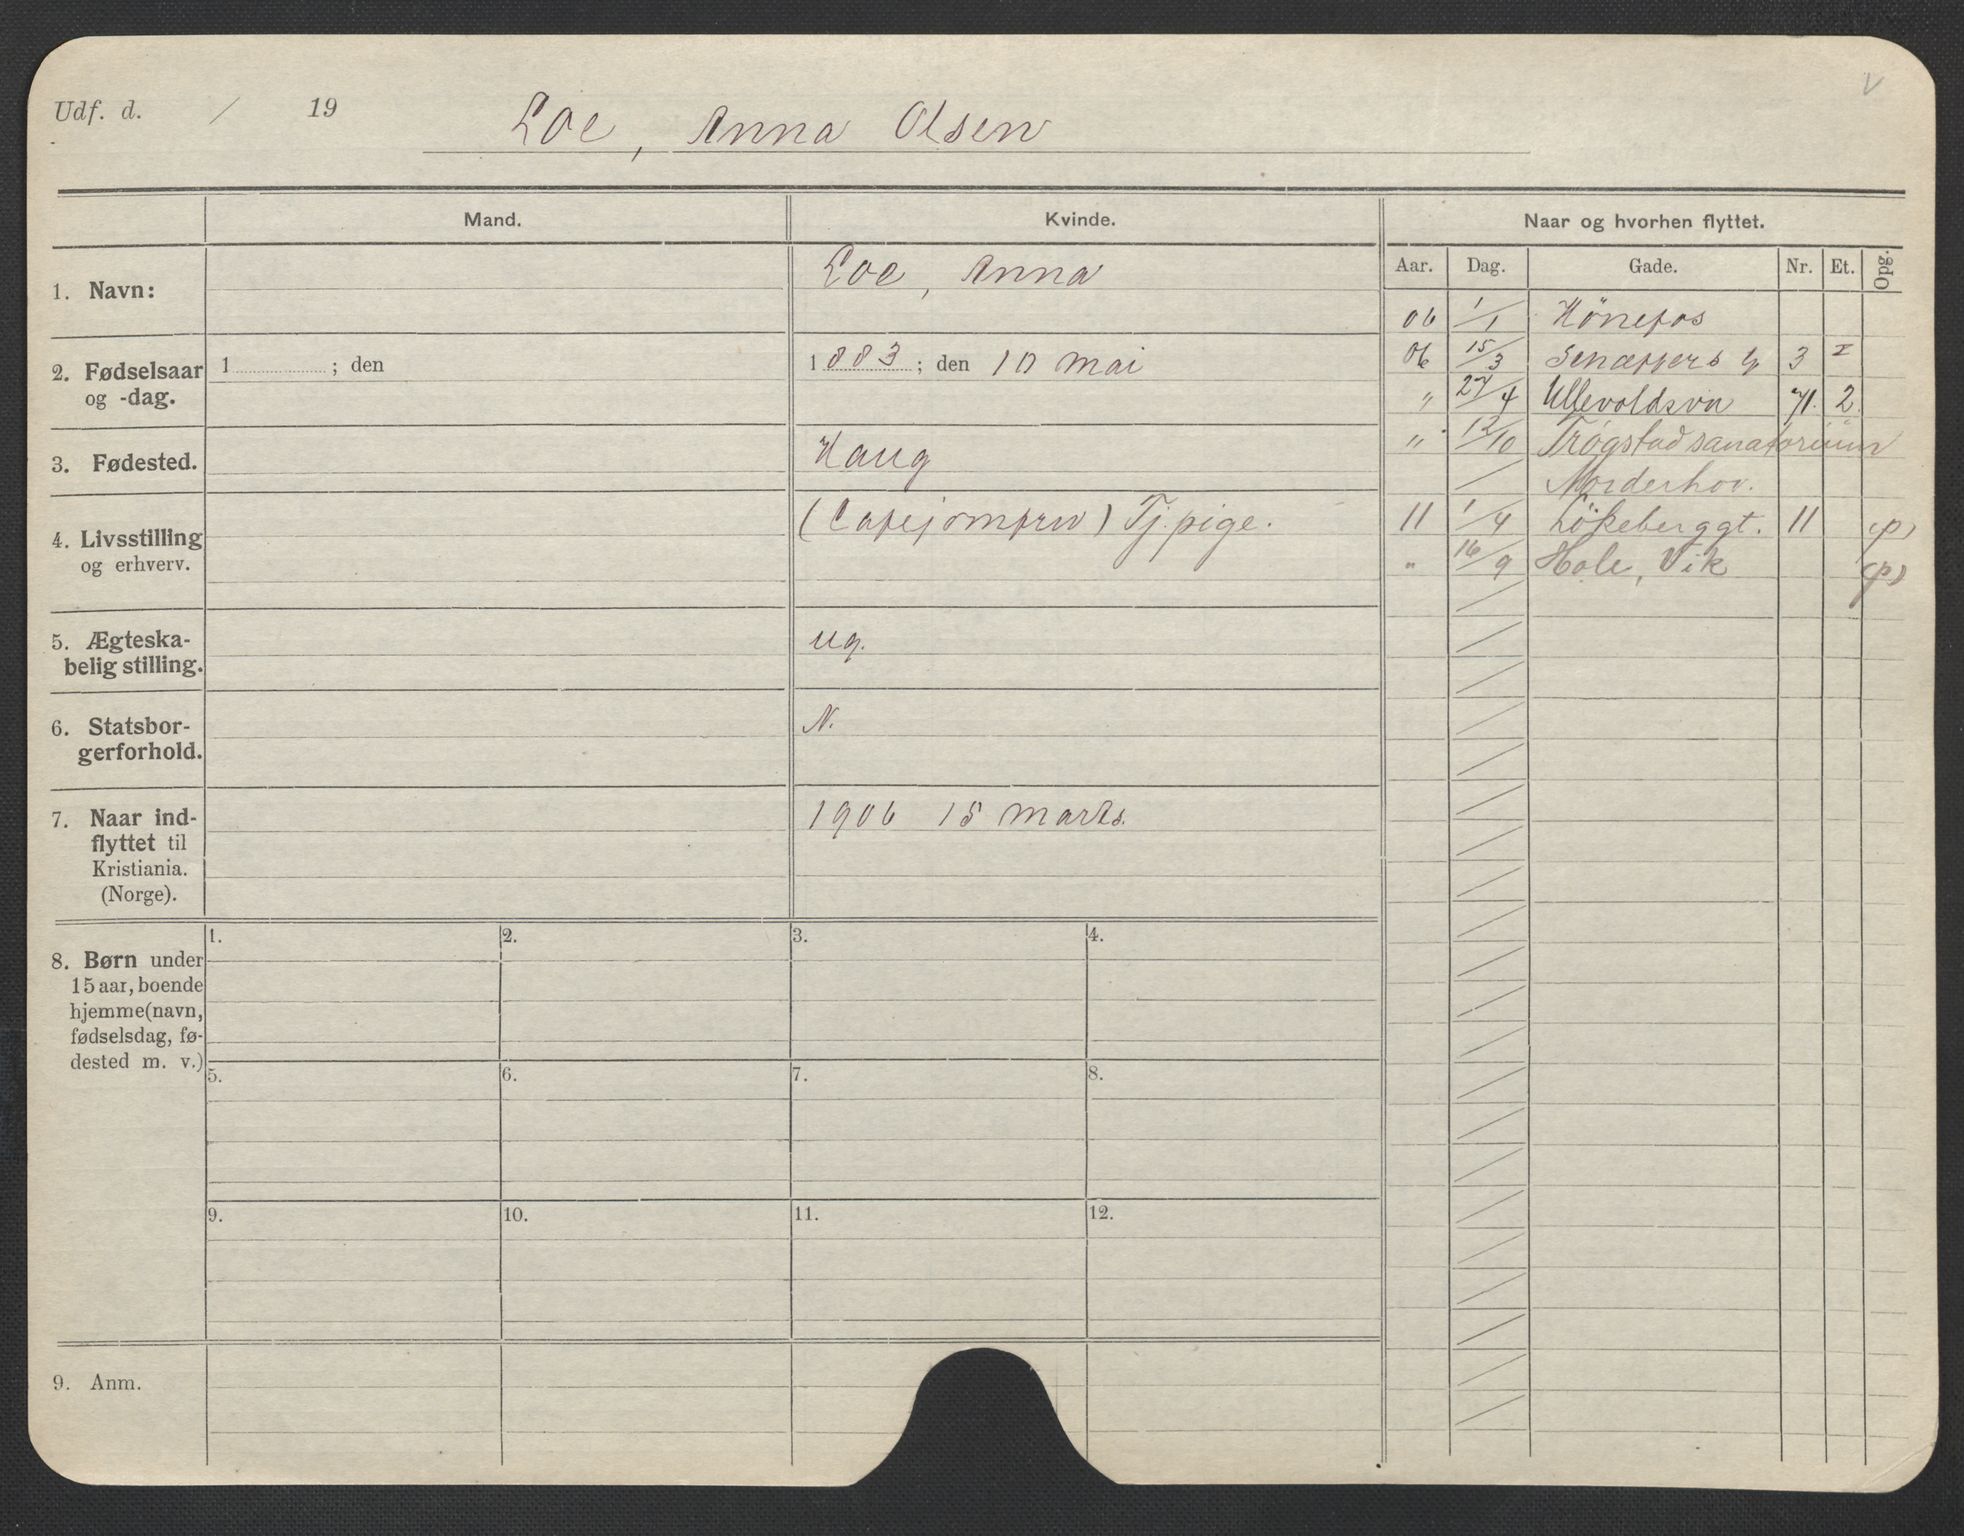 Udf. d. / 19
Loe, Anna Olsen
V
Mand.
Kvinde.
Naar og hvorhen flyttet.
Aar. Dag. Gade. Nr. Et. Opg.
1. Navn:
Loe, Anna
2. Fødselsaar
og -dag.
1 ; den
1883; den 10 mai
3. Fødested.
Haug
4. Livsstilling
og erhverv.
(Cafejomfru) Tj. pige.
5. Ægteska-
belig stilling.
ug.
6. Statsbor-
gerforhold.
N.
7. Naar ind-
flyttet til
Kristiania.
(Norge).
1906 15 marts.
06 1/1 Hönefos
06 15/3 Senæppers g 3 I
" 27/4 Ullevoldsvn 71. 2.
" 12/10 Trøgstad sanatorium
/ Norderhov.
11 1/4 Lökeberggt. 11 (p)
" 16/9 Hole, Vik (p)
8. Børn under
15 aar, boende
hjemme (navn,
fødselsdag, fø-
dested m. v.)
1. 2. 3. 4.
5. 6. 7. 8.
9. 10. 11. 12.
9. Anm.